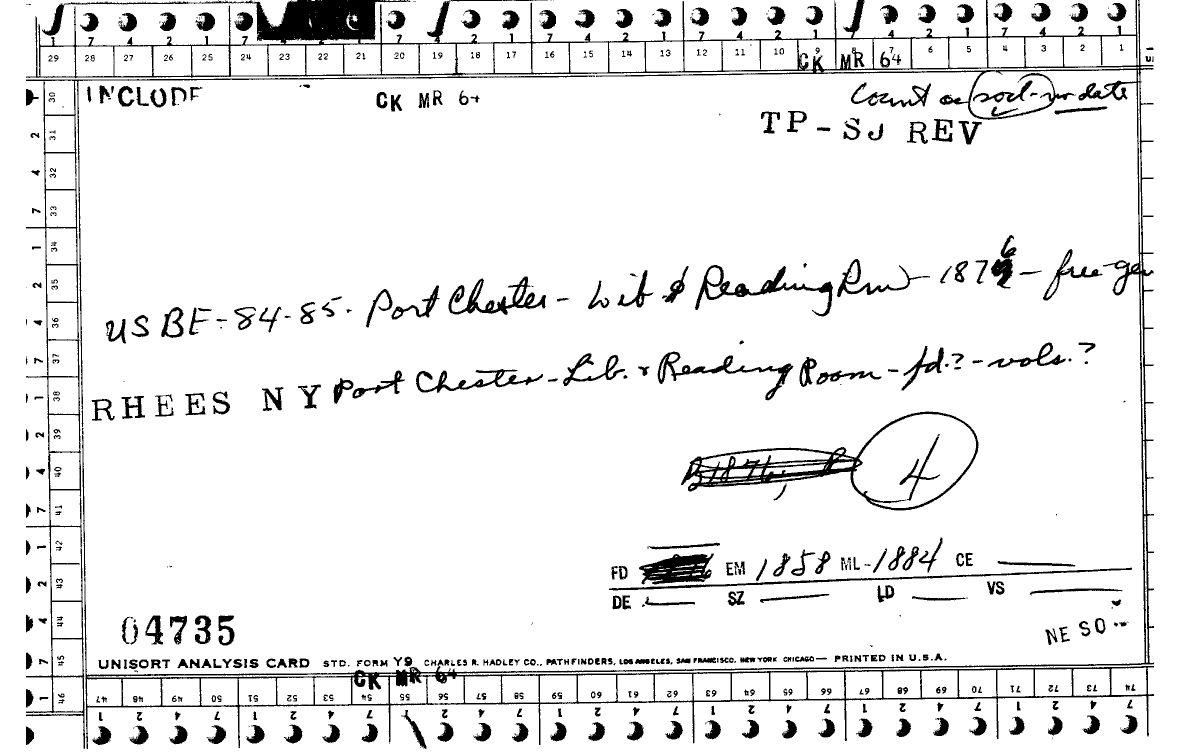 7 4 2 1 7 4 2 1 7 4 2 1 7 4 2 1 7 4 2 1 7 4 2 1
29 28 27 26 25 24 23 22 21 20 19 18 17 16 15 14 13 12 11 10 9 8 7 6 5 4 3 2 1
CK MR 64
INCLUDE CK MR 64 Count as sort no date
TP-SJ REV
US BE-84-85. Port Chester - Lib & Reading Rm - 1876 - free-gen
RHEES NY Port Chester - Lib. & Reading Room - fd.? - vols.?
B1876; R 4
FD EM 1858 ML-1884 CE
DE SZ LD VS
04735
NE SO
UNISORT ANALYSIS CARD STD. FORM Y9 CHARLES R. HADLEY CO., PATHFINDERS, LOS ANGELES, SAN FRANCISCO, NEW YORK CHICAGO— PRINTED IN U.S.A.
CK MR 64
30 31 32 33 34 35 36 37 38 39 40 41 42 43 44 45 46
47 48 49 50 51 52 53 54 55 56 57 58 59 60 61 62 63 64 65 66 67 68 69 70 71 72 73 74
1 2 4 7 1 2 4 7 1 2 4 7 1 2 4 7 1 2 4 7 1 2 4 7 1 2 4 7